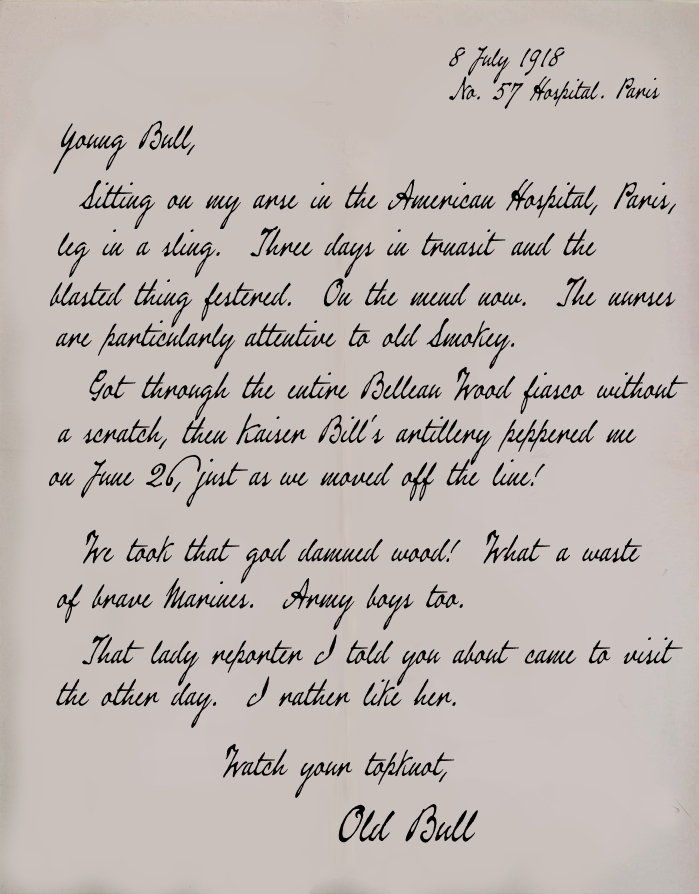 8 July 1918
No. 57 Hospital. Paris
Young Bull,
Sitting on my arse in the American Hospital, Paris,
leg in a sling. Three days in truasit and the
blasted thing festered. On the mend now. The nurses
are particularly attentive to old Smokey.
Got through the entire Belleau Wood fiasco without
a scratch, then Kaiser Bill's artillery peppered me
on June 26, just as we moved off the line!
We took that god damned wood! What a waste
of brave Marines. Army boys too.
That lady reporter I told you about came to visit
the other day. I rather like her.
Watch your topknot,
Old Bull